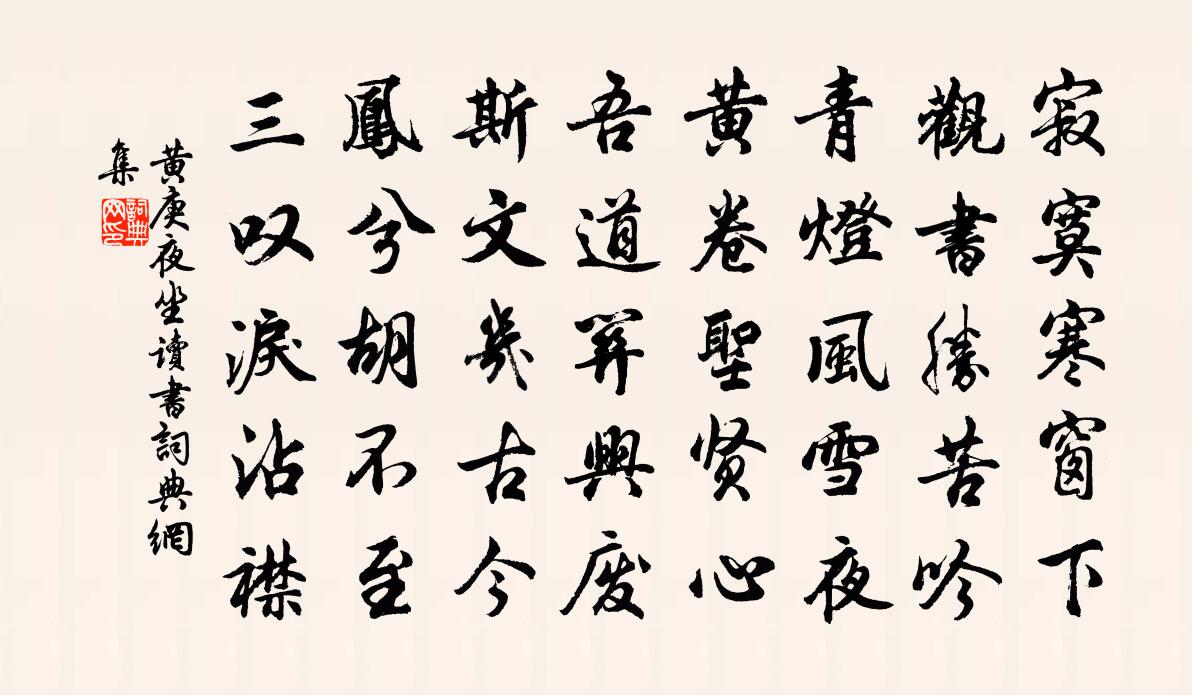 寂寞寒窗下
觀書勝苦吟
青燈風雪夜
黃卷聖贤心
吾道關興废
斯文幾古今
鳳兮胡不至
三叹淚沾襟
黃庚夜坐讀書詞典網
集
詞典网印